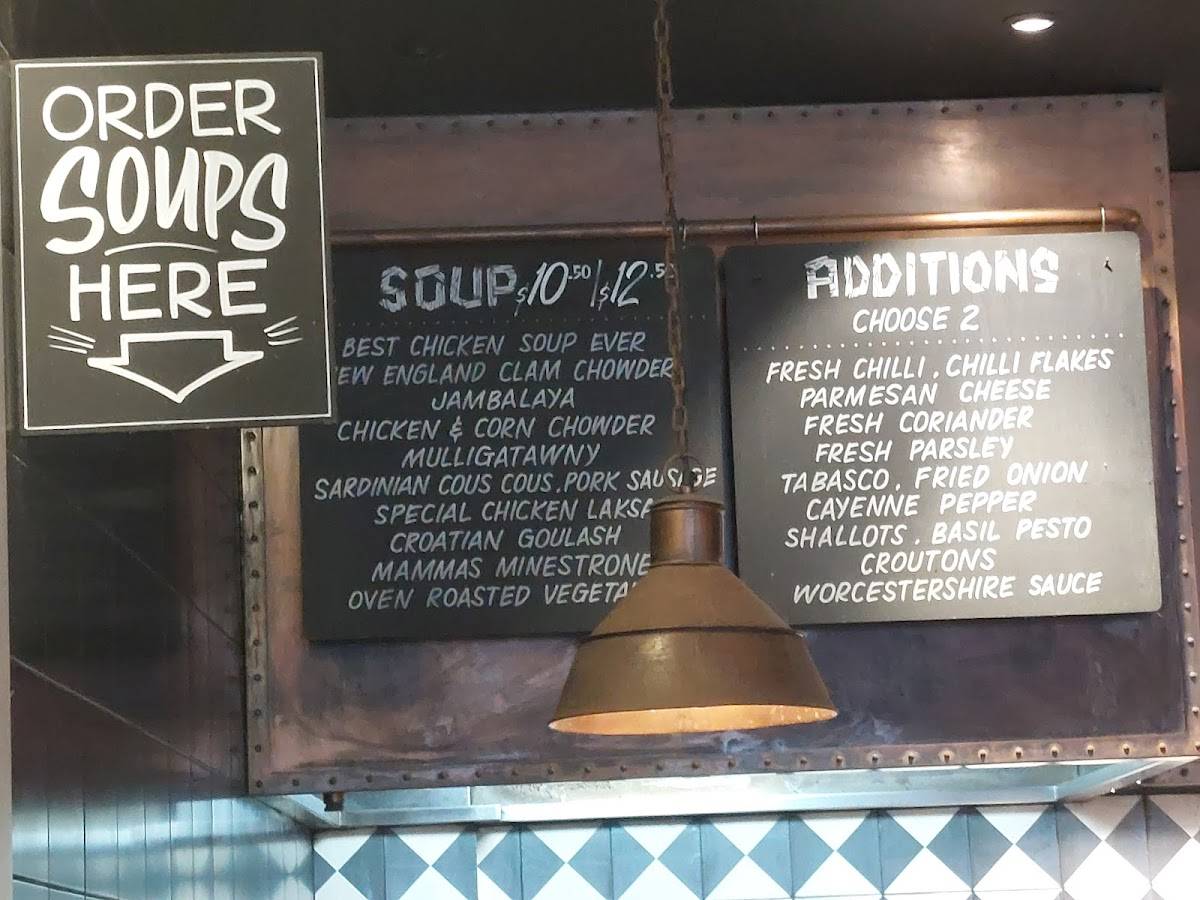 ORDER
SOUPS
HERE
SOUP $10.50 / $12.50
BEST CHICKEN SOUP EVER
ENGLAND CLAM CHOWDER
JAMBALAYA
CHICKEN & CORN CHOWDER
MULLIGATAWNY
SARDINIAN COUS COUS, PORK SAUSAGE
SPECIAL CHICKEN LAKSA
CROATIAN GOULASH
MAMMAS MINESTRONE
OVEN ROASTED
ADDITIONS
CHOOSE 2
FRESH CHILLI, CHILLI FLAKES
PARMESAN CHEESE
FRESH CORIANDER
FRESH PARSLEY
TABASCO, FRIED ONION
CAYENNE PEPPER
SHALLOTS, BASIL PESTO
CROUTONS
WORCESTERSHIRE SAUCE